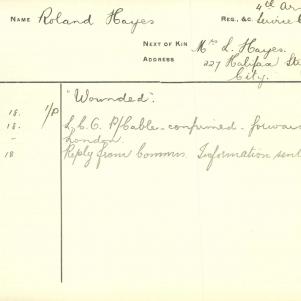 NAME Roland Hayes REG. &C. 4th Ar
Service
NEXT OF KIN Mrs L. Hayes.
ADDRESS 227 Halifax Str
City.
"Wounded".
18. 1/P
18. L.C.C. P/Cable - confirmed - forward
- London.
18 Reply from Commn. Information sent